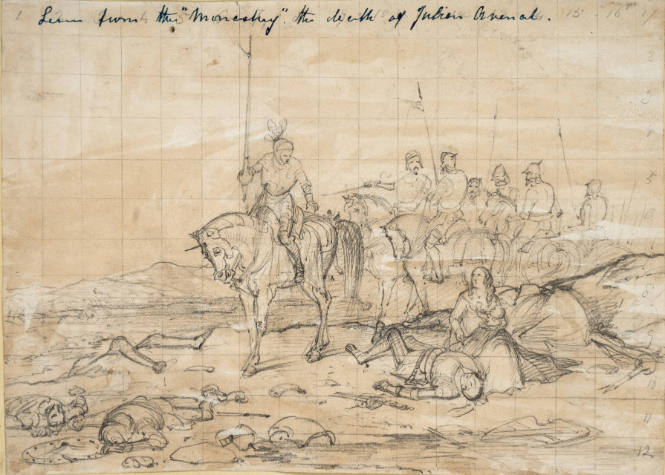 1 Scene from the "Monastery" the death of Julian Avenel. 15 16 17
2
3
5
6
8
10
11
12